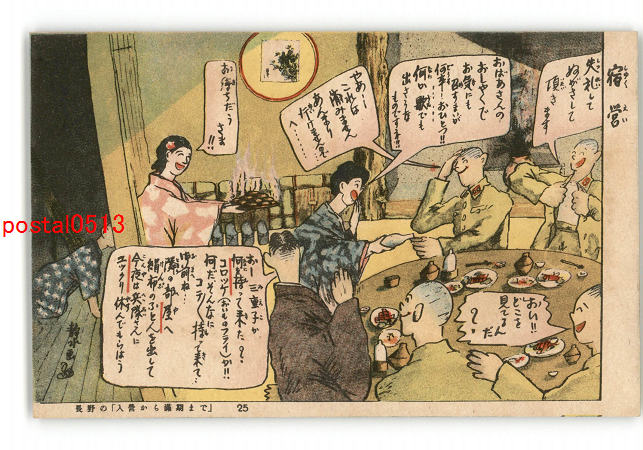 宿営
しゅくえい
失礼して
ぬがさして
頂きます
おばあさんの
おしやくで
お気にも
何か歌でも
出さうな
ものですナ!!
やあー
これは
済みません
あんまり
お待ちだう
さま!!
おい!!
どこを
見てんだ
?
おー三重子か
何を持って来た?
コロッケ(おいものフライ)か!!
何だそんなに
コテコテ持って来て
隣の部屋へ
絹布のふとんを出して
今夜は兵隊さんに
ユックリ休んでもらはう
静水画
長野の「入営から満期まで」 25
postal0513